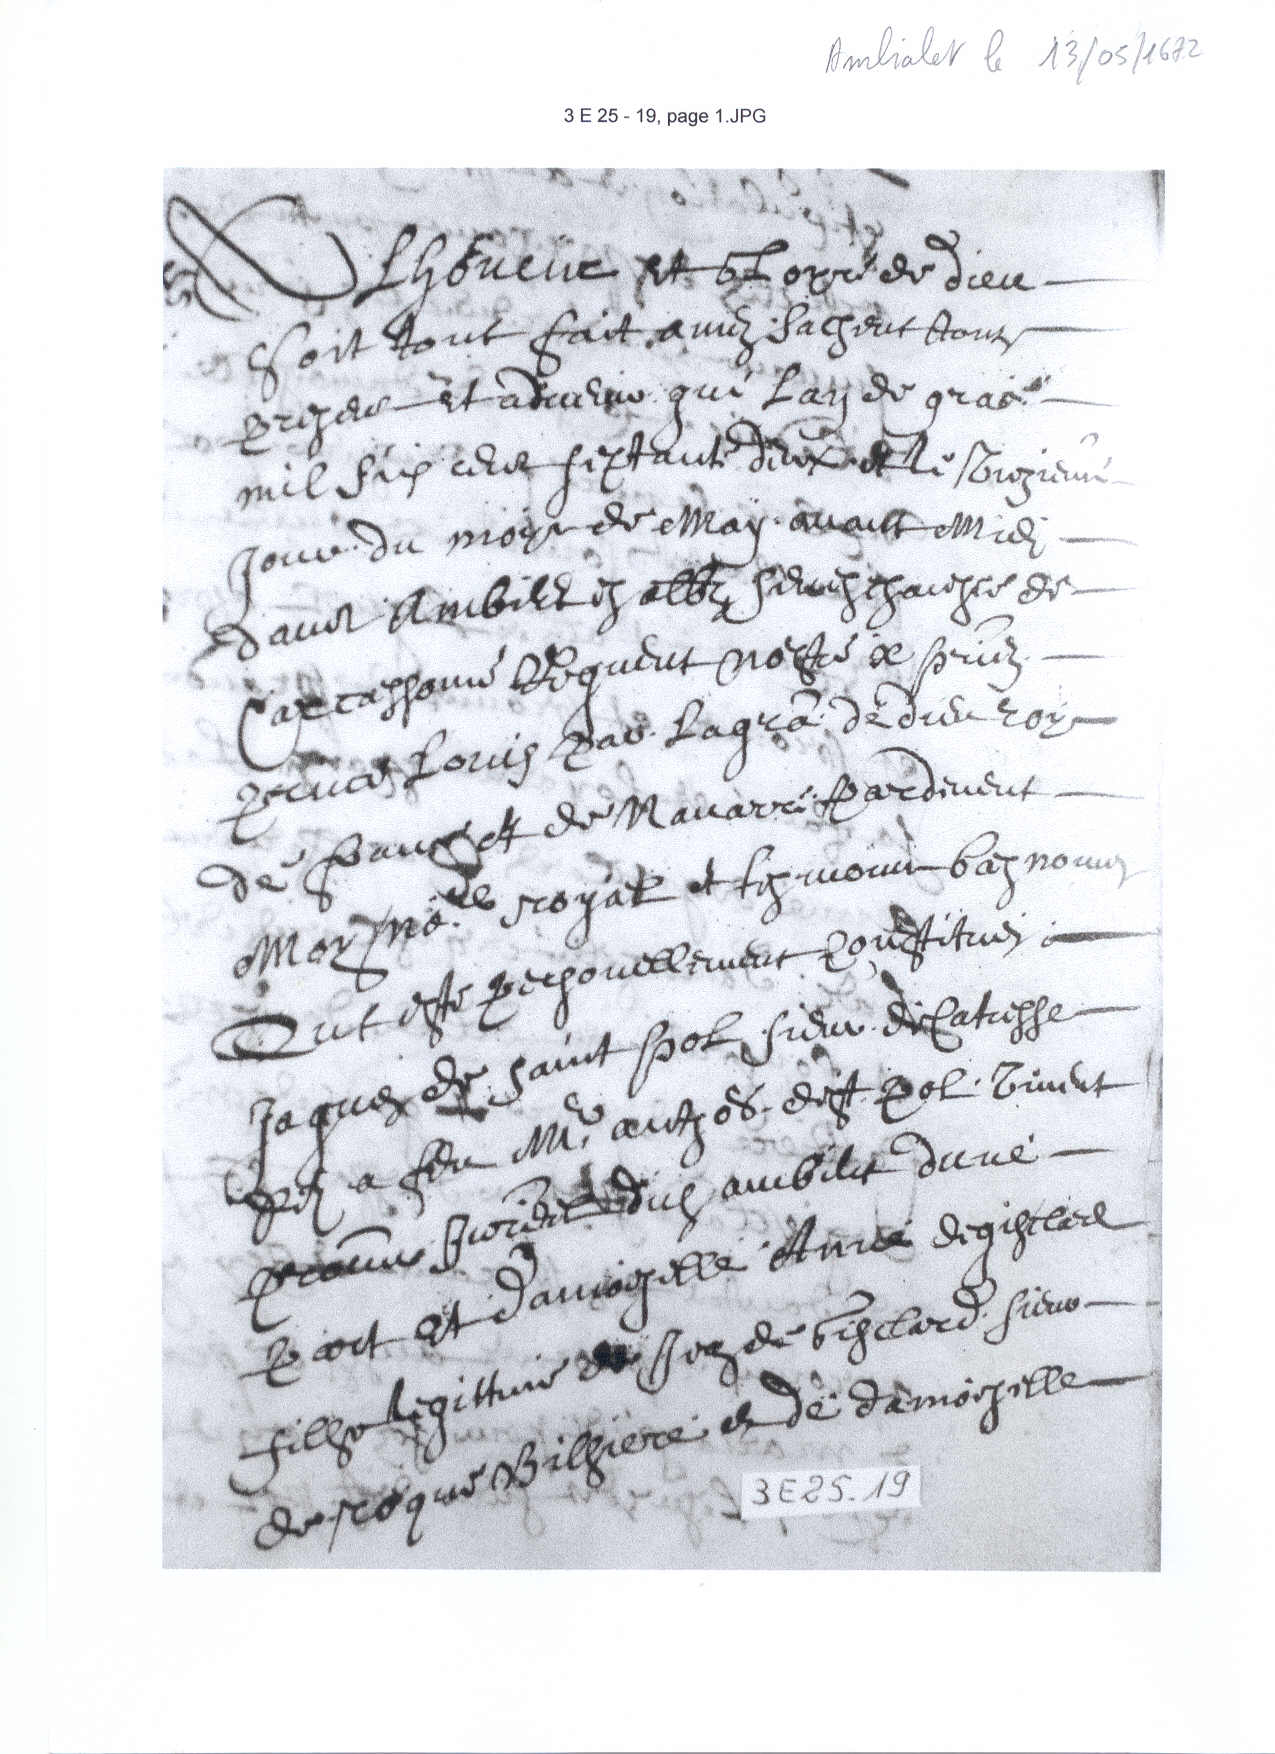 Ambialet le 13/05/1672
3 E 25 - 19, page 1.JPG
A Lhoneur et gloyre de dieu
soit tout fait amen sachent touts
presens et advenir que Lan de grace
mil six cens septante deux et le trezieme
Jour du moys de May avant Midy
dans Ambilet senechaucee de
Carcassonne Regnent nostre
prince Louis par La grace de dieu roy
de france et de Navarre pardevent
Moy no.re royal et tesmoins bas nomes
Ont este personnellement constitues
Jaques de saint pol sieur de
a feu M.e de st pol vivent
dud ambilet dune
part et damoyselle Anne de gisclard
filhe legitime de de gisclard sieur
de roque Bilhiere et de damoyselle
3E25-19